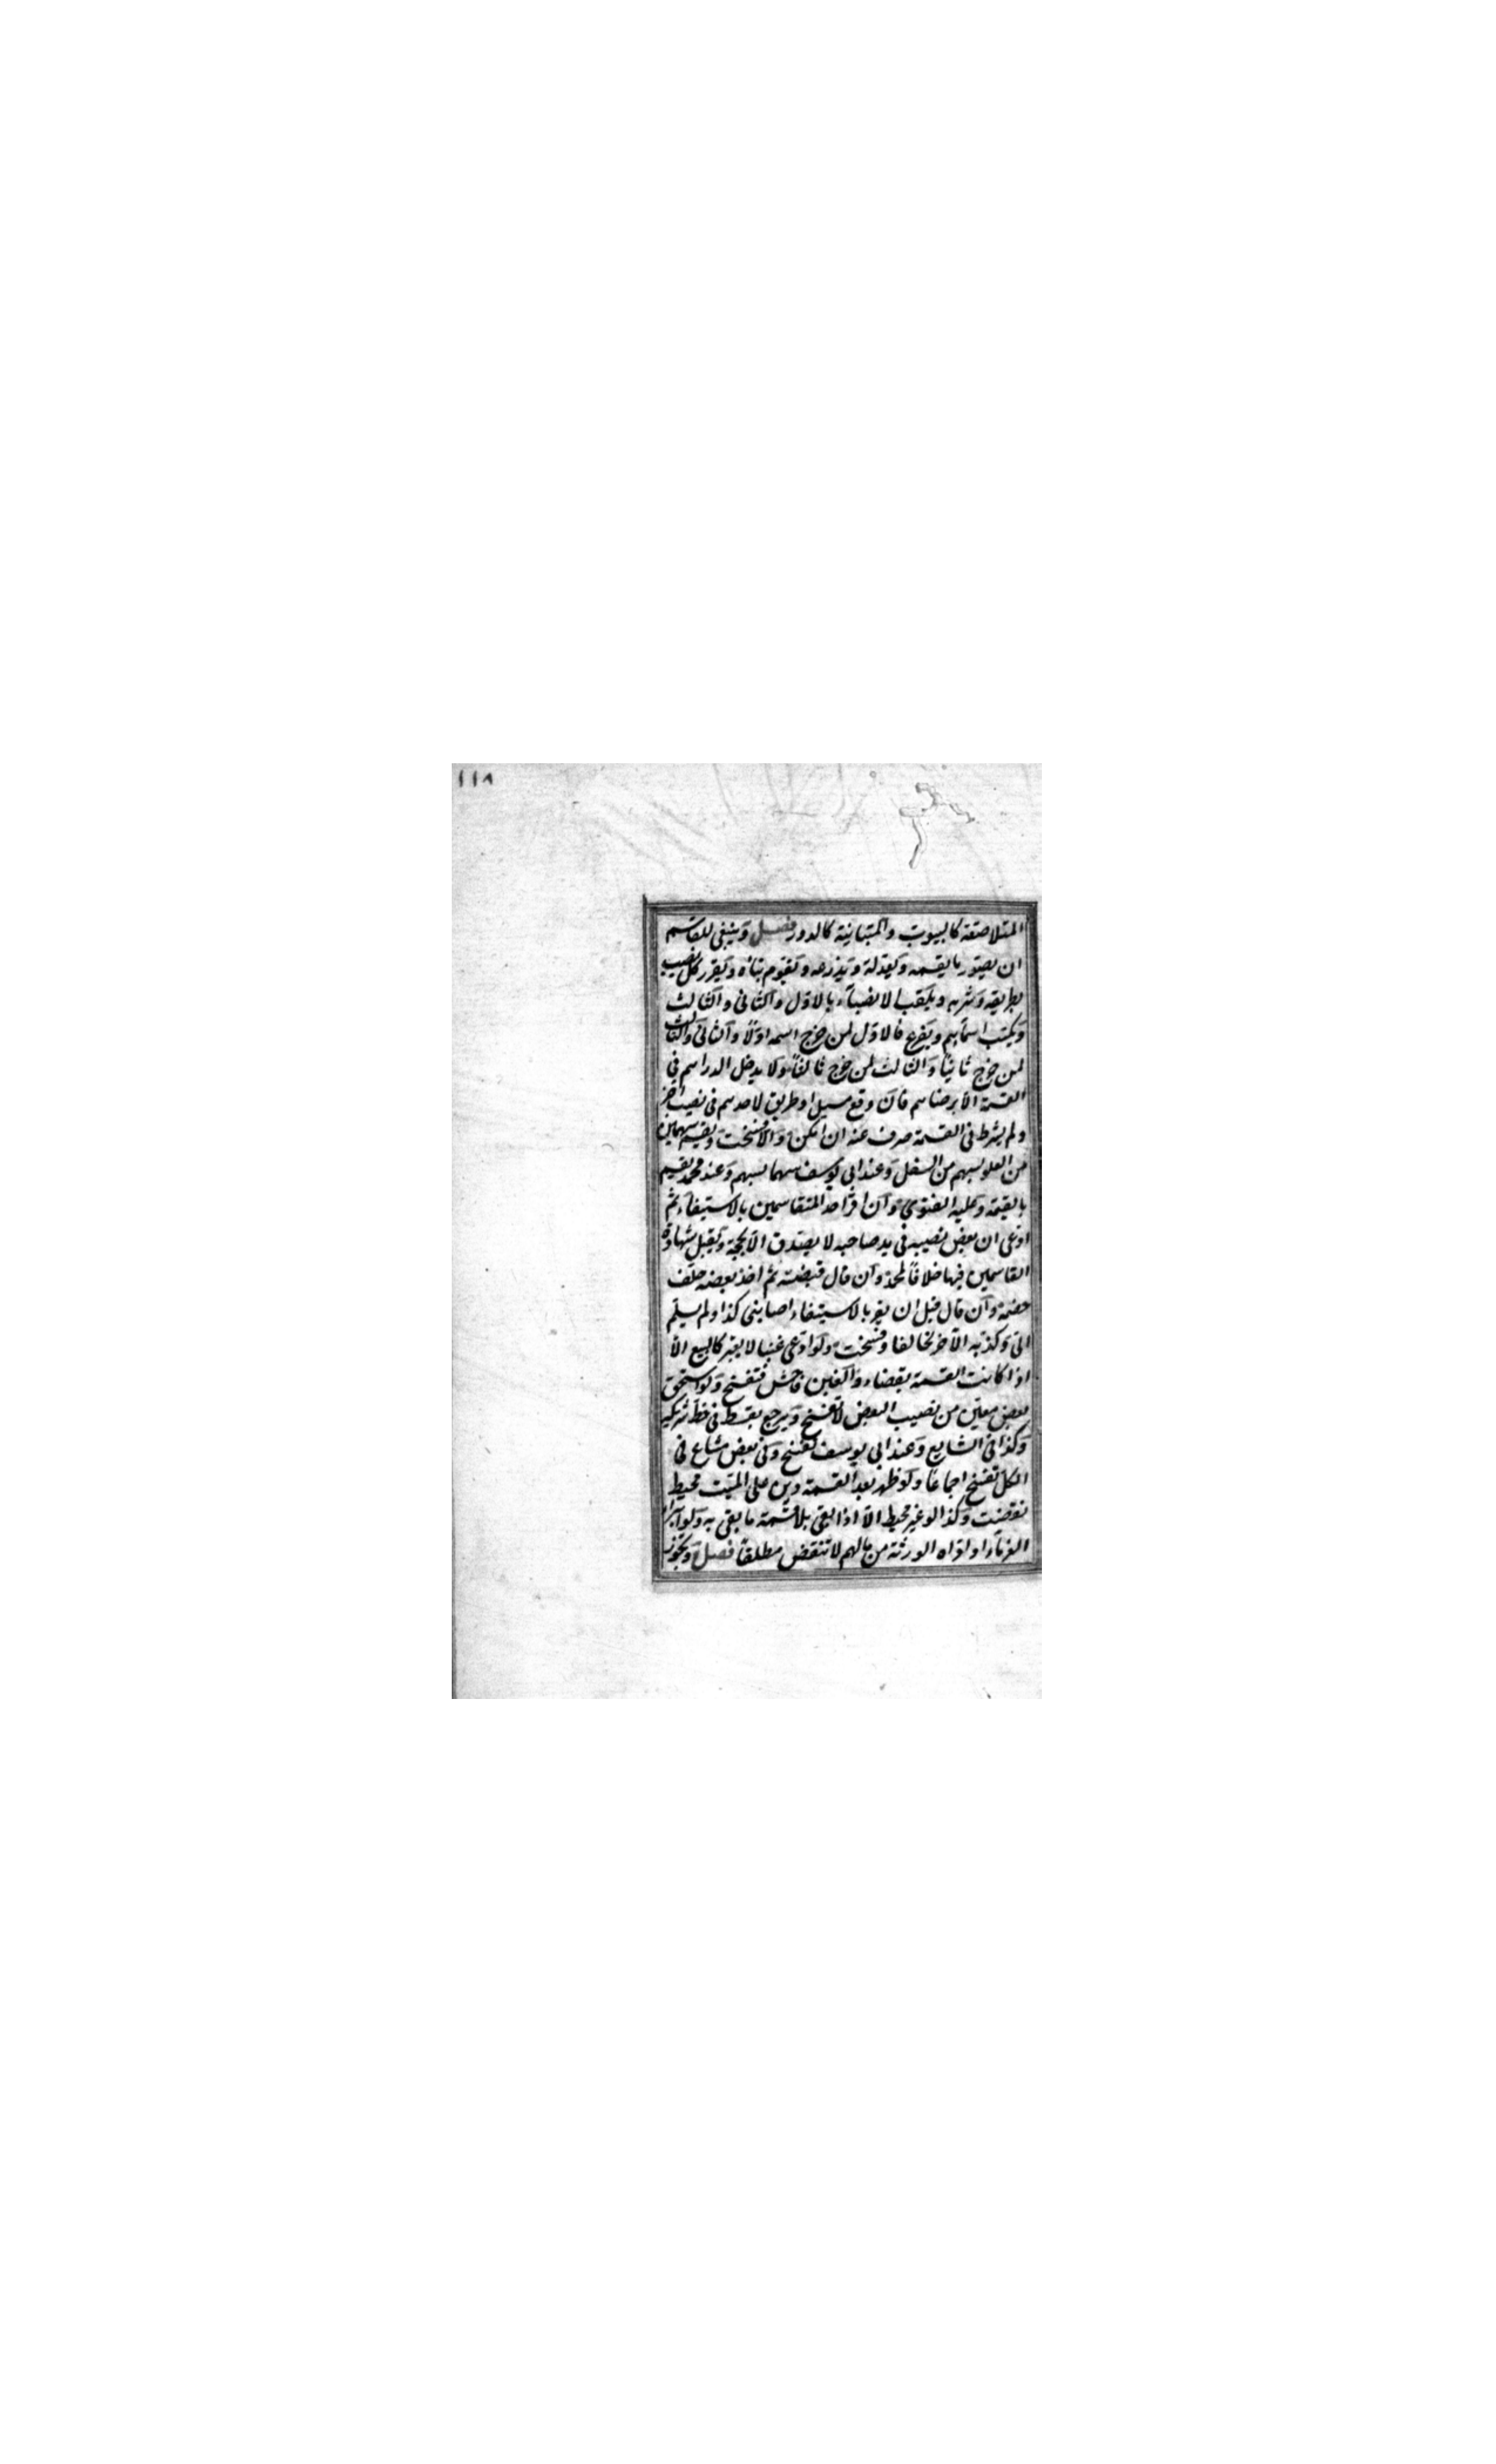 ١١٨
المتلاصقة كالبيوت والمتباينة كالدور فصل وينبغي للقاسم
ان يصور ما يقسمه ويعدله ويذرعه ويقوم بناه ويفرز كل نصيب
بطريقه وشربه ويلقب الانصباء بالاول والثاني والثالث
ويكتب اسمائهم ويقرع فالاول لمن خرج اسمه اولا والثاني والثالث
لمن خرج ثانيا والثالث لمن خرج ثالثا ولا يدخل الدراهم في
القسمة الا برضاهم فان وقع مسيل او طريق لاحدهم في نصيب آخر
ولم يشرط في القسمة صرف عنه ان امكن والا فسخت ويقسم سهمين
من العلو بسهم من السفل وعند ابي يوسف سهما بسهم وعند محمد يقسم
بالقيمة وعليه الفتوى وان اقر احد المتقاسمين بالاستيفاء ثم
ادعى ان بعض نصيبه في يد صاحبه لا يصدق الا بحجة وتقبل شهادة
القاسمين فيها خلافا لمحمد وان قال قبضته ثم اخذ بعضه حلف
خصمه وان قال قبل ان يقر بالاستيفاء اصابني كذا ولم يسلم
الي وكذبه الآخر تحالفا وفسخت ولو ادعى غبنا لا يعتبر كالبيع الا
اذا كانت القسمة بقضاء والغبن فاحش فتفسخ ولو استحق
بعض معين من نصيب البعض لا تفسخ ويرجع بقسطه في حظ شريكه
وكذا في الشايع وعند ابي يوسف تفسخ وفي بعض مشاع في
الكل تفسخ اجماعا ولو ظهر بعد القسمة دين على الميت محيط
نقضت وكذا لو غير محيط الا اذا بقي بلا قسمة ما يفي به ولو ابراه
الغرماء او اداه الورثة من مالهم لا تنقض مطلقا فصل وتجوز